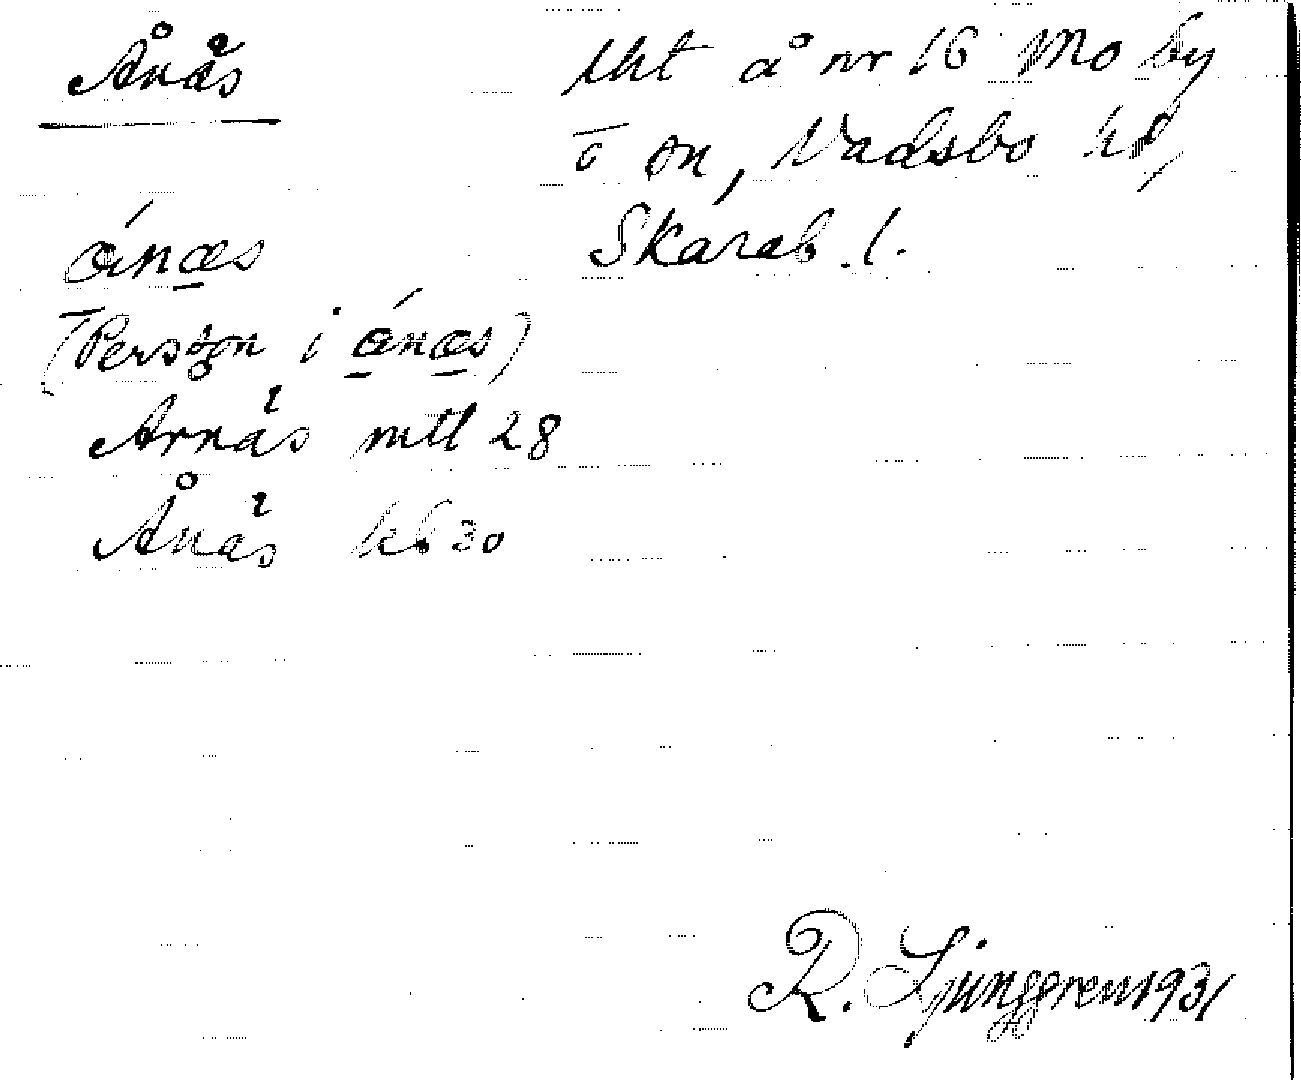 Ånäs
lht å nr 16 Mo by
o sn, Vadsbo hd,
Skarab. l.
ánæs
(Person i ánæs)
Arnäs mtl 28
Ånäs kb 30
R. Ljunggren 1931